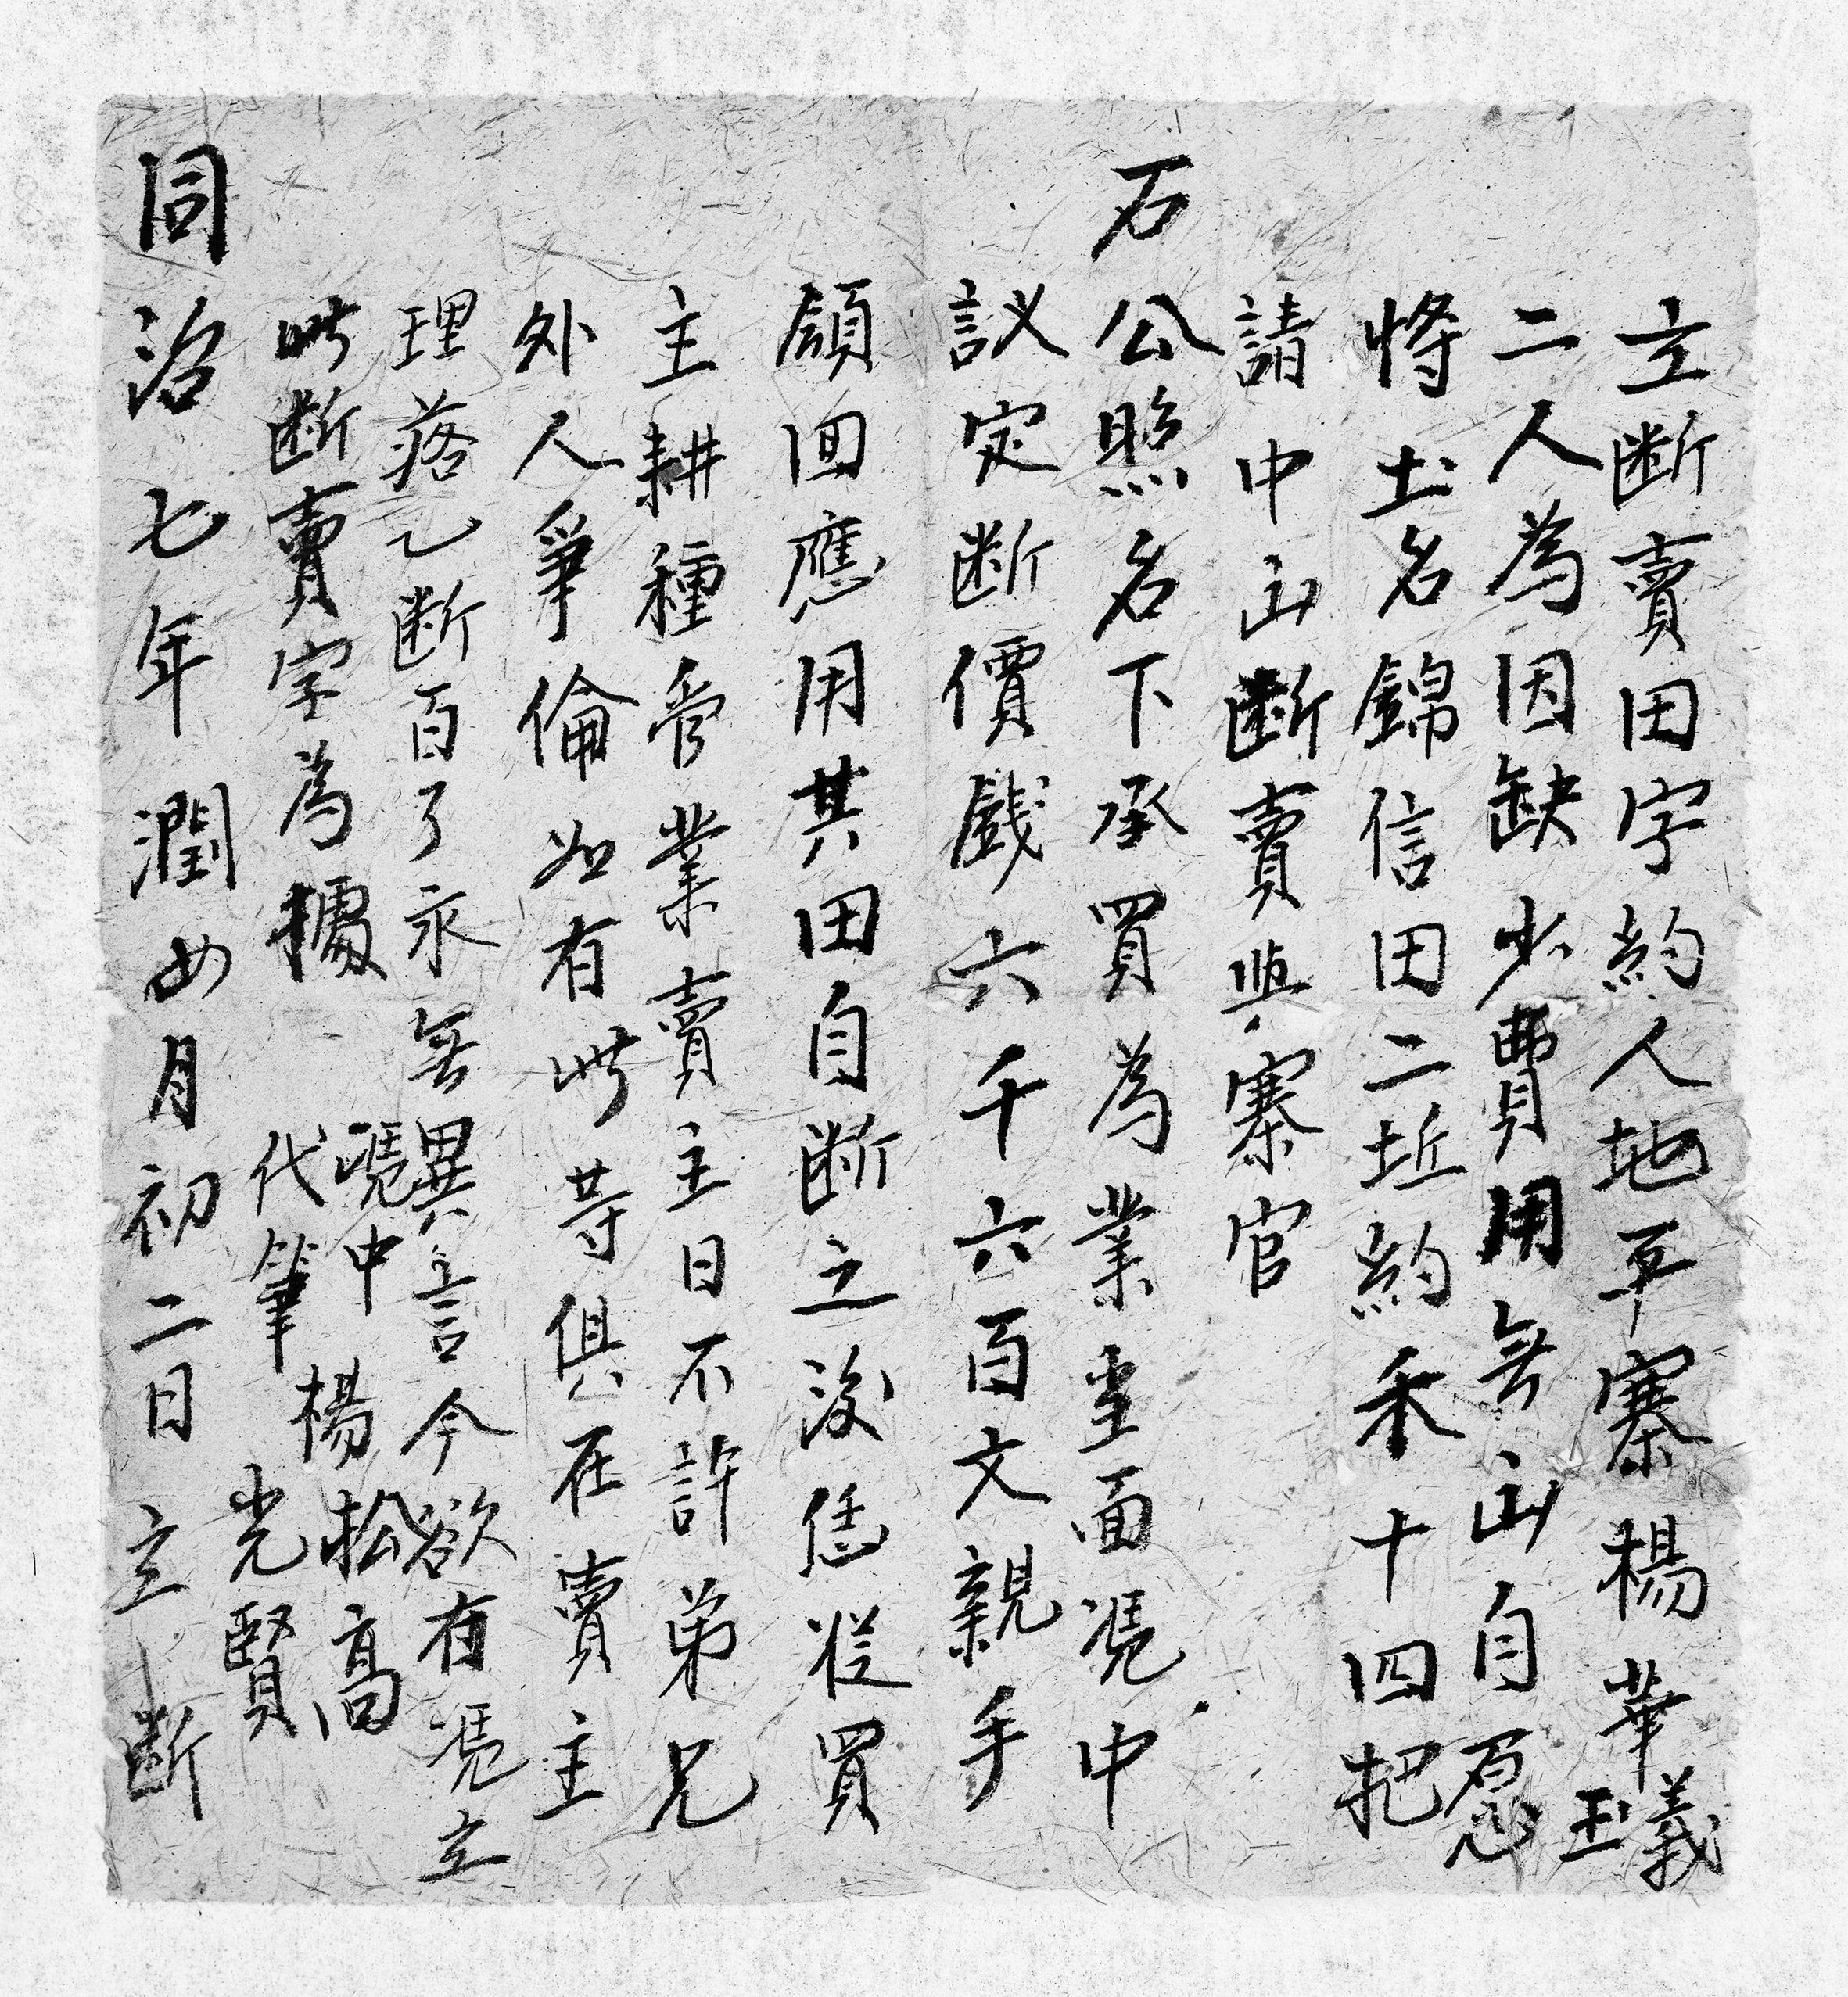 立断賣田字約人地平寨楊華義
玉
二人為因缺少費用無山自愿
将土名錦信田二坵約禾十四把
請中山断賣與寨官
石公照名下承買為業坐面凭中
議定断價戲六千六百文親手
領回應用其田自断之後恁從買
主耕種管業賣主日不許弟兄
外人爭倫如有此等俱在賣主
理落乙断百了永無異言今欲有凭立
此断賣字為據
凭中楊松高
代筆光賢
同治七年潤四月初二日立断